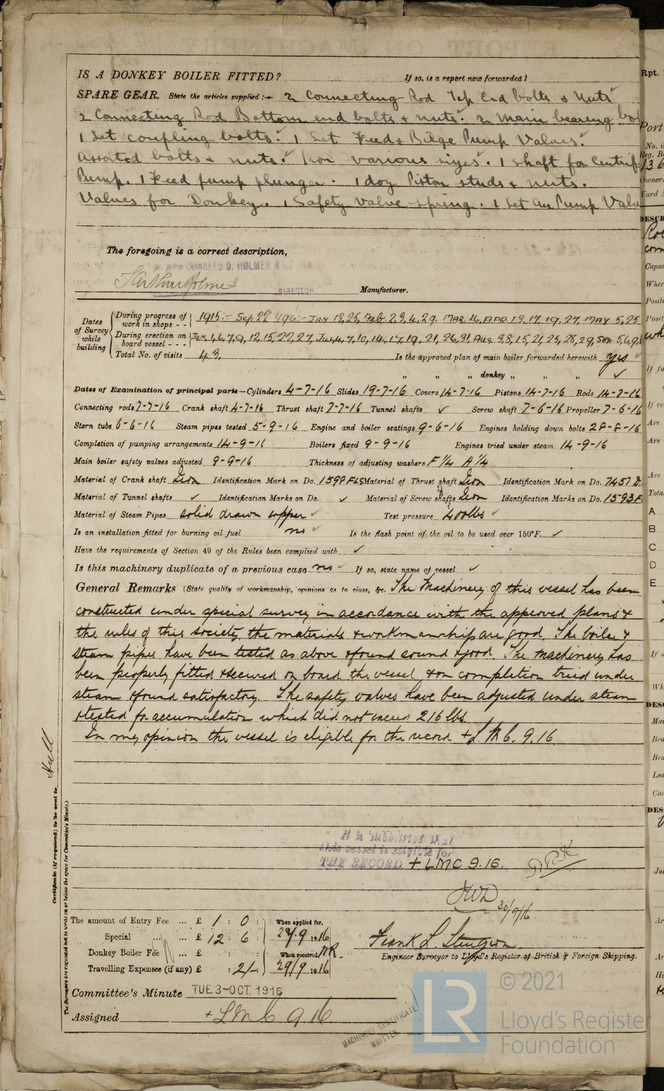 IS A DONKEY BOILER FITTED? If so, is a report now forwarded?
SPARE GEAR. State the articles supplied:— 2 Connecting Rod Top End bolts & Nuts
2 Connecting Rod Bottom end bolts & nuts. 2 Main bearing
1 Set coupling bolts. 1 Set Feed & Bilge Pump Valves.
Assorted bolts & nuts. Iron various sizes. 1 shaft for Centrif
Pump. 1 Feed pump plunger. 1 doz Piston studs & nuts.
Valves for Donkey. 1 Safety Valve spring. 1 Set Air Pump Valve
The foregoing is a correct description,
CHARLES D. HOLMES
DIRECTOR Manufacturer.
Dates of Survey while building
During progress of work in shops - - 1915:- Sep 22 1916:- Jan 18, 25, Feb 2, 3, 4, 29. MAR. 16, APR 13, 17, 19, 27, MAY 5, 25
During erection on board vessel - - -
Total No. of visits 43, Is the approved plan of main boiler forwarded herewith yes
" " " donkey " " " ✓
Dates of Examination of principal parts—Cylinders 4-7-16 Slides 19-7-16 Covers 14-7-16 Pistons 14-7-16 Rods 14-7-16
Connecting rods 7-7-16 Crank shaft 4-7-16 Thrust shaft 7-7-16 Tunnel shafts ✓ Screw shaft 7-6-16 Propeller 7-6-16
Stern tube 6-6-16 Steam pipes tested 5-9-16 Engine and boiler seatings 9-6-16 Engines holding down bolts 28-8-16
Completion of pumping arrangements 14-9-16 Boilers fixed 9-9-16 Engines tried under steam 14-9-16
Main boiler safety valves adjusted 9-9-16 Thickness of adjusting washers F 1/4 A 1/4
Material of Crank shaft Iron Identification Mark on Do. 1599 FLS Material of Thrust shaft Iron Identification Mark on Do. 7457
Material of Tunnel shafts ✓ Identification Marks on Do. ✓ Material of Screw shafts Iron Identification Marks on Do. 1593 F
Material of Steam Pipes solid drawn copper Test pressure 400lbs
Is an installation fitted for burning oil fuel no Is the flash point of the oil to be used over 150°F. ✓
Have the requirements of Section 49 of the Rules been complied with ✓
Is this machinery duplicate of a previous case no If so, state name of vessel ✓
General Remarks (State quality of workmanship, opinions as to class, &c. The Machinery of this vessel has been
constructed under special survey in accordance with the approved plans &
the rules of this society, the materials & workmanship are good. The boiler &
steam pipes have been tested as above & found sound & good. The machinery has
been properly fitted & secured on board the vessel, & on completion tried under
steam & found satisfactory. The safety valves have been adjusted under steam
& tested for accumulation which did not exceed 216 lbs
In my opinion the vessel is eligible for the record + L.M.C. 9.16
It is submitted that
this vessel is eligible for
THE RECORD + LMC 9.16.
30/9/16
The amount of Entry Fee ... £ 1 : 0 : When applied for,
Special ... £ 12 : 6 : 28/9 1916
Donkey Boiler Fee ... £ : : When received,
Travelling Expenses (if any) £ : 2/- : 29/9 1916
Frank L. Sturgeon
Engineer Surveyor to Lloyd's Register of British & Foreign Shipping.
Committee's Minute TUE. 3-OCT. 1916
Assigned + L.M.C. 9.16
MACHINERY CERTIFICATE
WRITTEN
Certificate (if required) to be sent to Hull
LR
© 2021
Lloyd's Register
Foundation